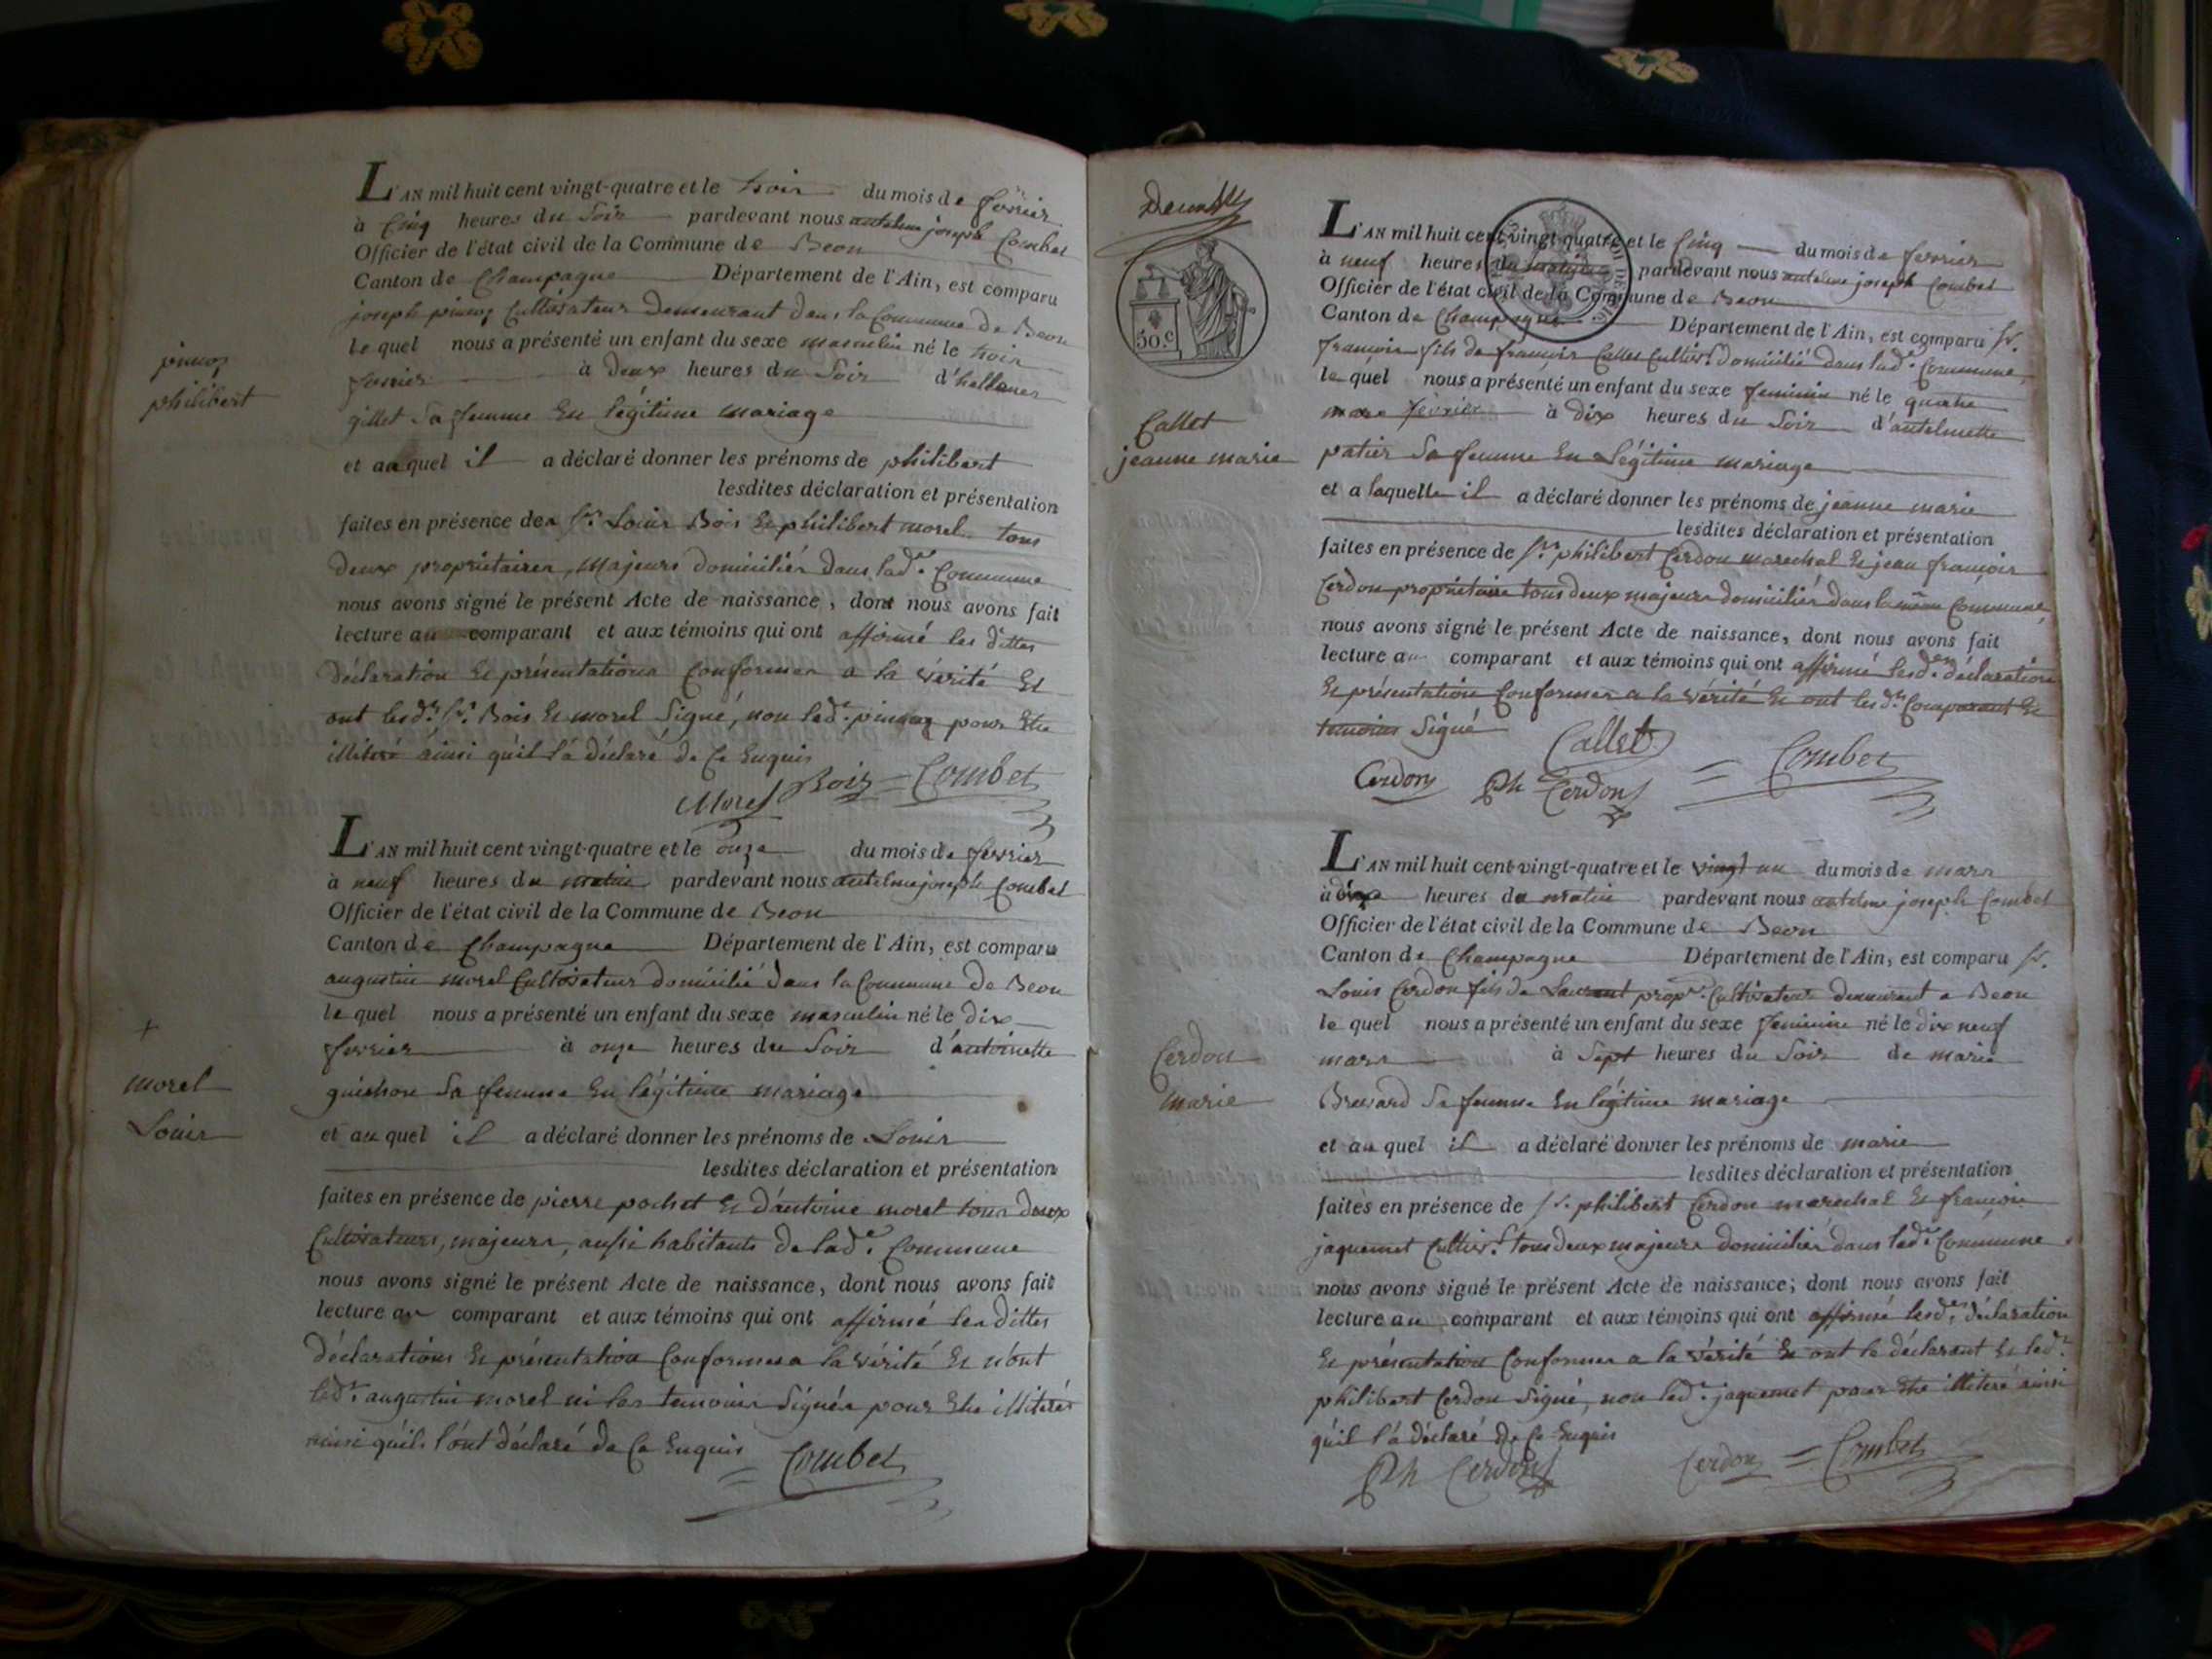 L'AN mil huit cent vingt-quatre et le trois du mois de fevrier
à Cinq heures du Soir pardevant nous antelme joseph Combet
Officier de l'état civil de la Commune de Beon
Canton de Champagne Département de l'Ain, est comparu
joseph Cultivateur Demeurant dans la Commune de Beon
le quel nous a présenté un enfant du sexe masculin né le trois
fevrier à deux heures du Soir
gillet Sa femme En légitime mariage
philibert
et au quel il a déclaré donner les prénoms de philibert
lesdites déclaration et présentation
faites en présence des Srs Louis Bois Et philibert morel tous
deux propriétaires, Majeurs domiciliés dans lade. Commune
nous avons signé le présent Acte de naissance, dont nous avons fait
lecture au comparant et aux témoins qui ont affirmé les dittes
déclaration Et présentations Conformes a la vérité Et
ont lesds. Srs. Bois Et morel Signé, non led. pour Etre
illiteré ainsi qu'il l'a déclaré de Ce Enquis
Morel Bois = Combet
L'AN mil huit cent vingt-quatre et le onze du mois de fevrier
à neuf heures du matin pardevant nous antelme joseph Combet
Officier de l'état civil de la Commune de Beon
Canton de Champagne Département de l'Ain, est comparu
augustin morel Cultivateur domicilié dans la Commune de Beon
le quel nous a présenté un enfant du sexe masculin né le dix
fevrier à onze heures du Soir d'antoinette
guichon Sa femme En légitime mariage
+
morel
Louis
et au quel il a déclaré donner les prénoms de Louis
lesdites déclaration et présentation
faites en présence de pierre pochet Et d'antoine morel tous deux
Cultivateurs, majeurs, aussi habitants de lade. Commune
nous avons signé le présent Acte de naissance, dont nous avons fait
lecture au comparant et aux témoins qui ont affirmé les dittes
déclarations Et présentation Conformes a la vérité Et n'ont
led. augustin morel ni les temoins Signés pour Etre illiterés
ainsi qu'ils l'ont déclaré de Ce Enquis = Combet
50.C
L'AN mil huit cent vingt-quatre et le Cinq du mois de fevrier
à neuf heures du matin pardevant nous antelme joseph Combet
Officier de l'état civil de la Commune de Beon
Canton de Champagne Département de l'Ain, est comparu Sr.
francois fils de francois Callet Cultivr. domicilié dans lade. Commune
le quel nous a présenté un enfant du sexe feminin né le quatre
mars fevrier à dix heures du Soir d'antelmette
patier Sa femme En Légitime mariage
Callet
jeanne marie
et a laquelle il a déclaré donner les prénoms de jeanne marie
lesdites déclaration et présentation
faites en présence de Srs philibert Cerdon marechal Et jean françois
Cerdon propriétaire tous deux majeurs domiciliés dans la même Commune
nous avons signé le présent Acte de naissance, dont nous avons fait
lecture au comparant et aux témoins qui ont affirmé lesdes. déclaration
Et présentation Conformes a la vérité Et ont lesds. Comparant Et
temoins Signé
Callet
Cerdon Ph Cerdon = Combet
L'AN mil huit cent vingt-quatre et le vingt un du mois de mars
à heures du matin pardevant nous antelme joseph Combet
Officier de l'état civil de la Commune de Beon
Canton de Champagne Département de l'Ain, est comparu Sr.
Louis Cerdon fils de Laurent propre. Cultivateur demeurant a Beon
le quel nous a présenté un enfant du sexe feminin né le dix neuf
mars à Sept heures du Soir de marie
Sa femme En légitime mariage
Cerdon
marie
et au quel il a déclaré donner les prénoms de marie
lesdites déclaration et présentation
faites en présence de Sr. philibert Cerdon marechal Et françois
jaquemet Cultivr. tous deux majeurs domiciliés dans lade. Commune
nous avons signé le présent Acte de naissance; dont nous avons fait
lecture au comparant et aux témoins qui ont affirmé lesdes. déclaration
Et présentation Conformes a la vérité Et ont le déclarant Et led.
philibert Cerdon Signé, non led. jaquemet pour Etre illiteré ainsi
qu'il l'a déclaré de Ce Enquis
Ph Cerdon Cerdon = Combet